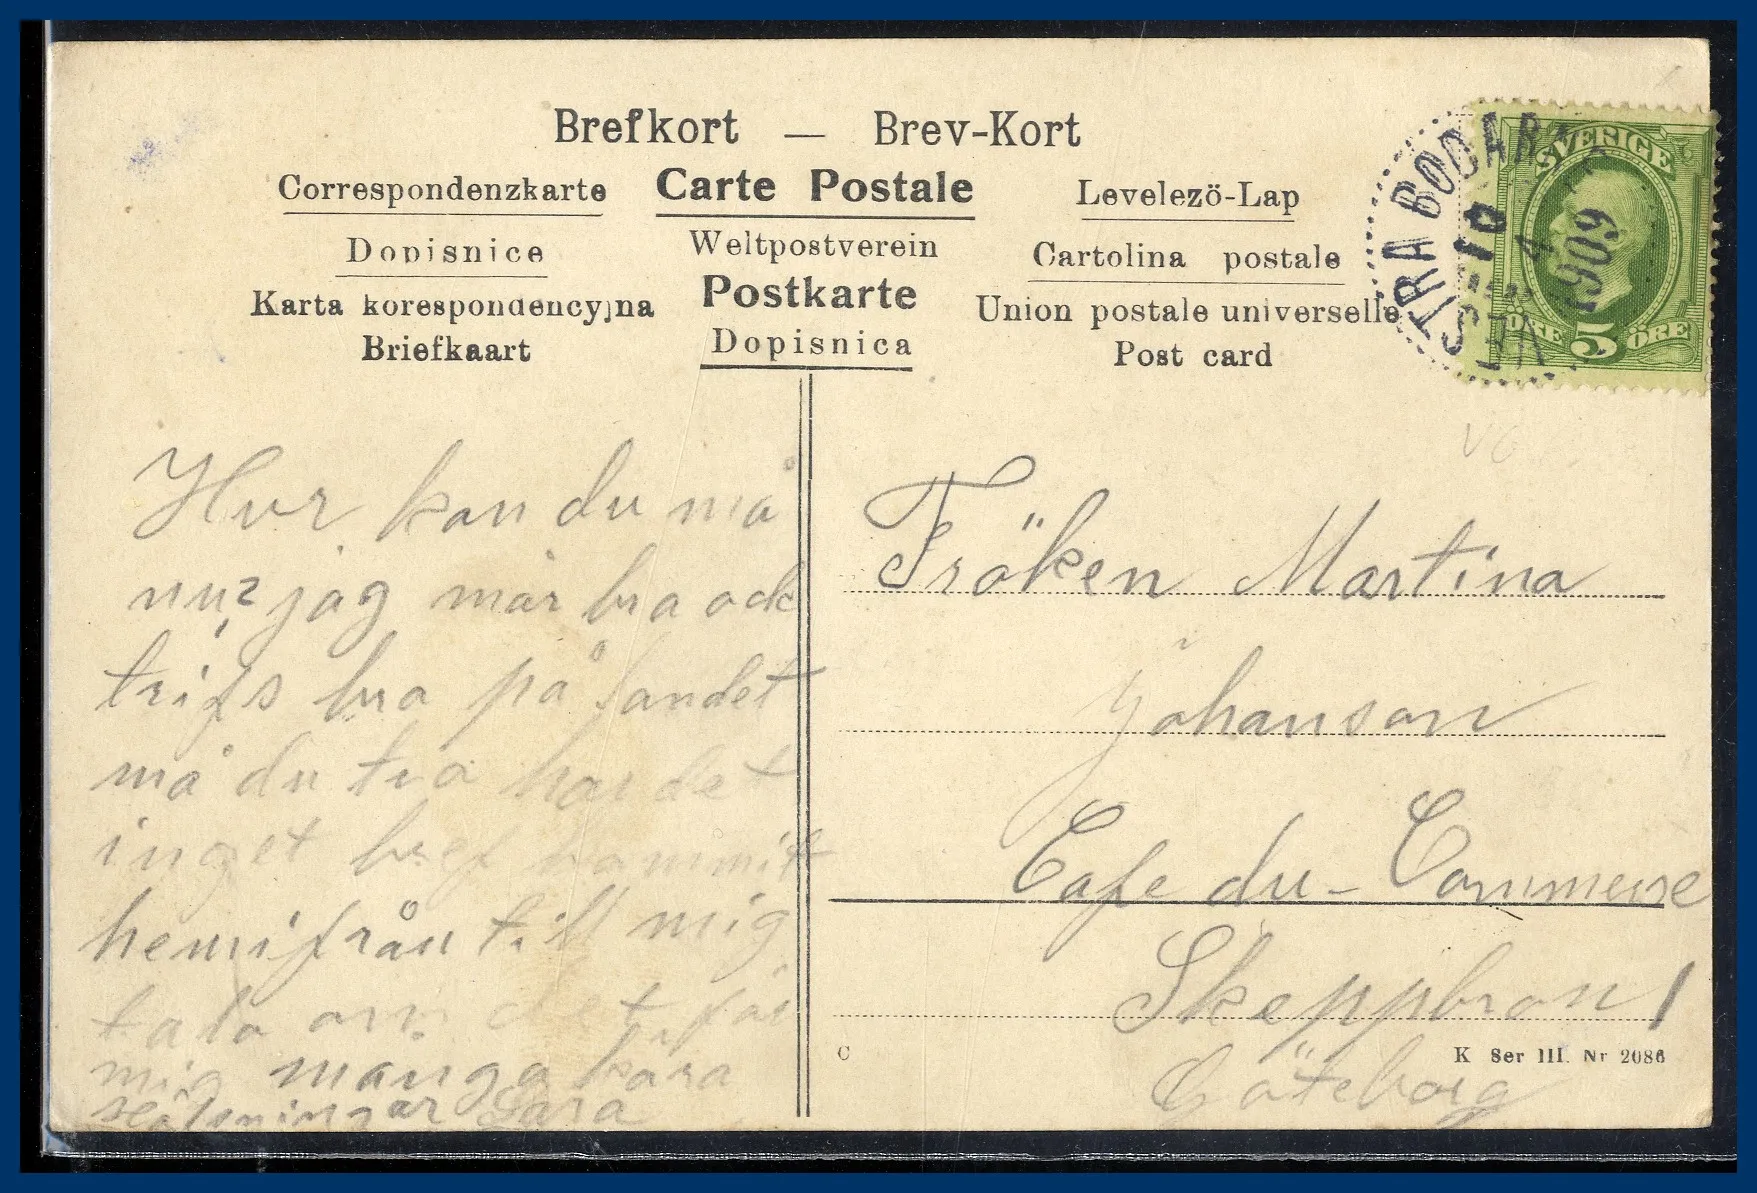 Brefkort — Brev-Kort
Correspondenzkarte Carte Postale Levelezö-Lap
Dopisnice Weltpostverein Cartolina postale
Karta korespondencyjna Postkarte Union postale universelle
Briefkaart Dopisnica Post card
SVERIGE
5 ÖRE
STRA BODARN
10
4
1909
Hur kan du må
nu? jag mår bra ock
trifs bra på landet
må du tro har det
inget bref kommit
hemifrån till mig
tala om det för
mig många kära
hälsningar Sara
Fröken Martina
Johanson
Cafe du - Commerse
Skeppbron 1
Göteborg
C
K Ser III. Nr 2086